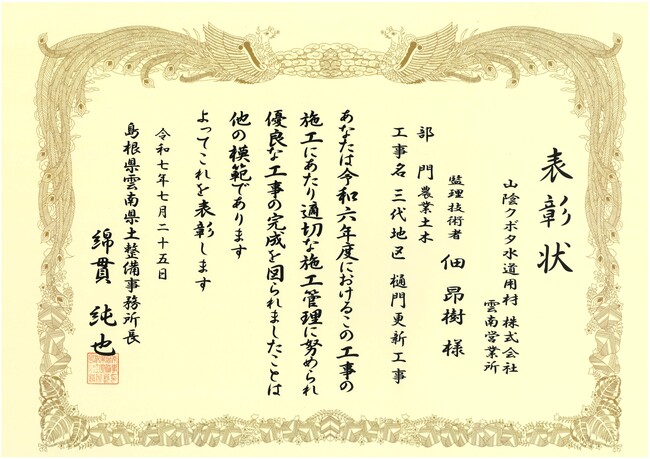 表彰状
山陰クボタ水道用材 株式会社
雲南営業所
監理技術者 佃 昂樹 様
部 門 農業土木
工事名 三代地区 樋門更新工事
あなたは令和六年度におけるこの工事の
施工にあたり適切な施工管理に努められ
優良な工事の完成を図られましたことは
他の模範であります
よってこれを表彰します
令和七年七月二十五日
島根県雲南県土整備事務所長
綿貫 純也